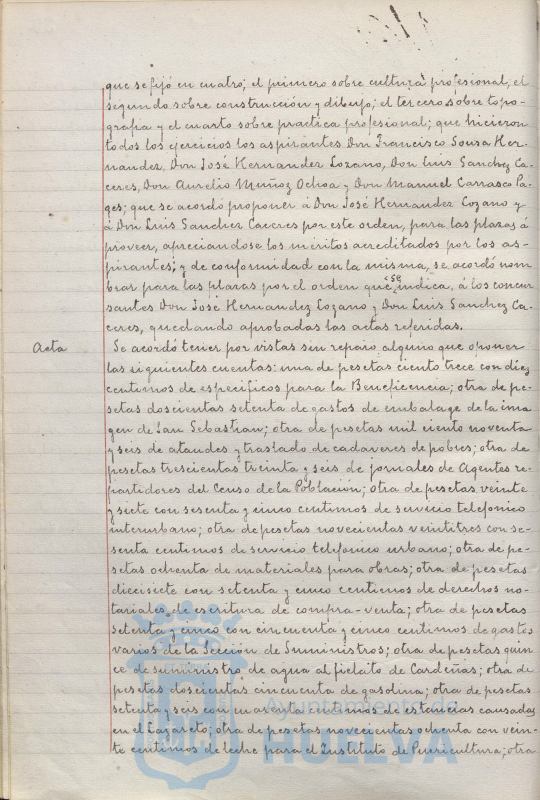 que se fijó en cuatro; el primero sobre cultura profesional, el
segundo sobre construcción y dibujo; el tercero sobre topo-
grafia y el cuarto sobre practica profesional; que hicieron
todos los ejercicios los aspirantes Don Francisco Sousa Her-
nandez, Don José Hernandez Lozano, Don Luis Sanchez Ca-
ceres, Don Aurelio Muñoz Ochoa y Don Manuel Carrasco Pa-
ges; que se acordó proponer á Don José Hernandez Lozano y
á Don Luis Sanchez Caceres por este orden, para las plazas á
proveer, apreciandose los meritos acreditados por los as-
pirantes; y de conformidad con la misma, se acordó nom
brar para las plazas por el orden que se indica, á los concur
santes Don José Hernandez Lozano y Don Luis Sanchez Ca-
ceres, quedando aprobadas las actas referidas.
Acta
Se acordó tener por vistas sin reparo alguno que oponer
las siguientes cuentas: una de pesetas ciento trece con diez
centimos de especificos para la Beneficencia; otra de pe-
setas doscientas setenta de gastos de embalage de la ima
gen de San Sebastian; otra de pesetas mil ciento noventa
y seis de ataudes y traslado de cadaveres de pobres; otra de
pesetas trescientas treinta y seis de jornales de Agentes re-
partidores del Censo de la Población; otra de pesetas veinte
y siete con sesenta y cinco centimos de servicio telefonico
interurbano; otra de pesetas novecientas veintitres con se-
senta centimos de servicio telefonico urbano; otra de pe-
setas ochenta de materiales para obras; otra de pesetas
diecisiete con setenta y cinco centimos de derechos no-
tariales de escritura de compra-venta; otra de pesetas
setenta y cinco con cincuenta y cinco centimos de gastos
varios de la Sección de Suministros; otra de pesetas quin
ce de suministro de agua al fielato de Cardeñas; otra de
pesetas doscientas cincuenta de gasolina; otra de pesetas
setenta y seis con cuarenta centimos de estancias causadas
en el Lazareto; otra de pesetas novecientas ochenta con vein-
te centimos de leche para el Instituto de Puericultura; otra
Ayuntamiento de
HUELVA